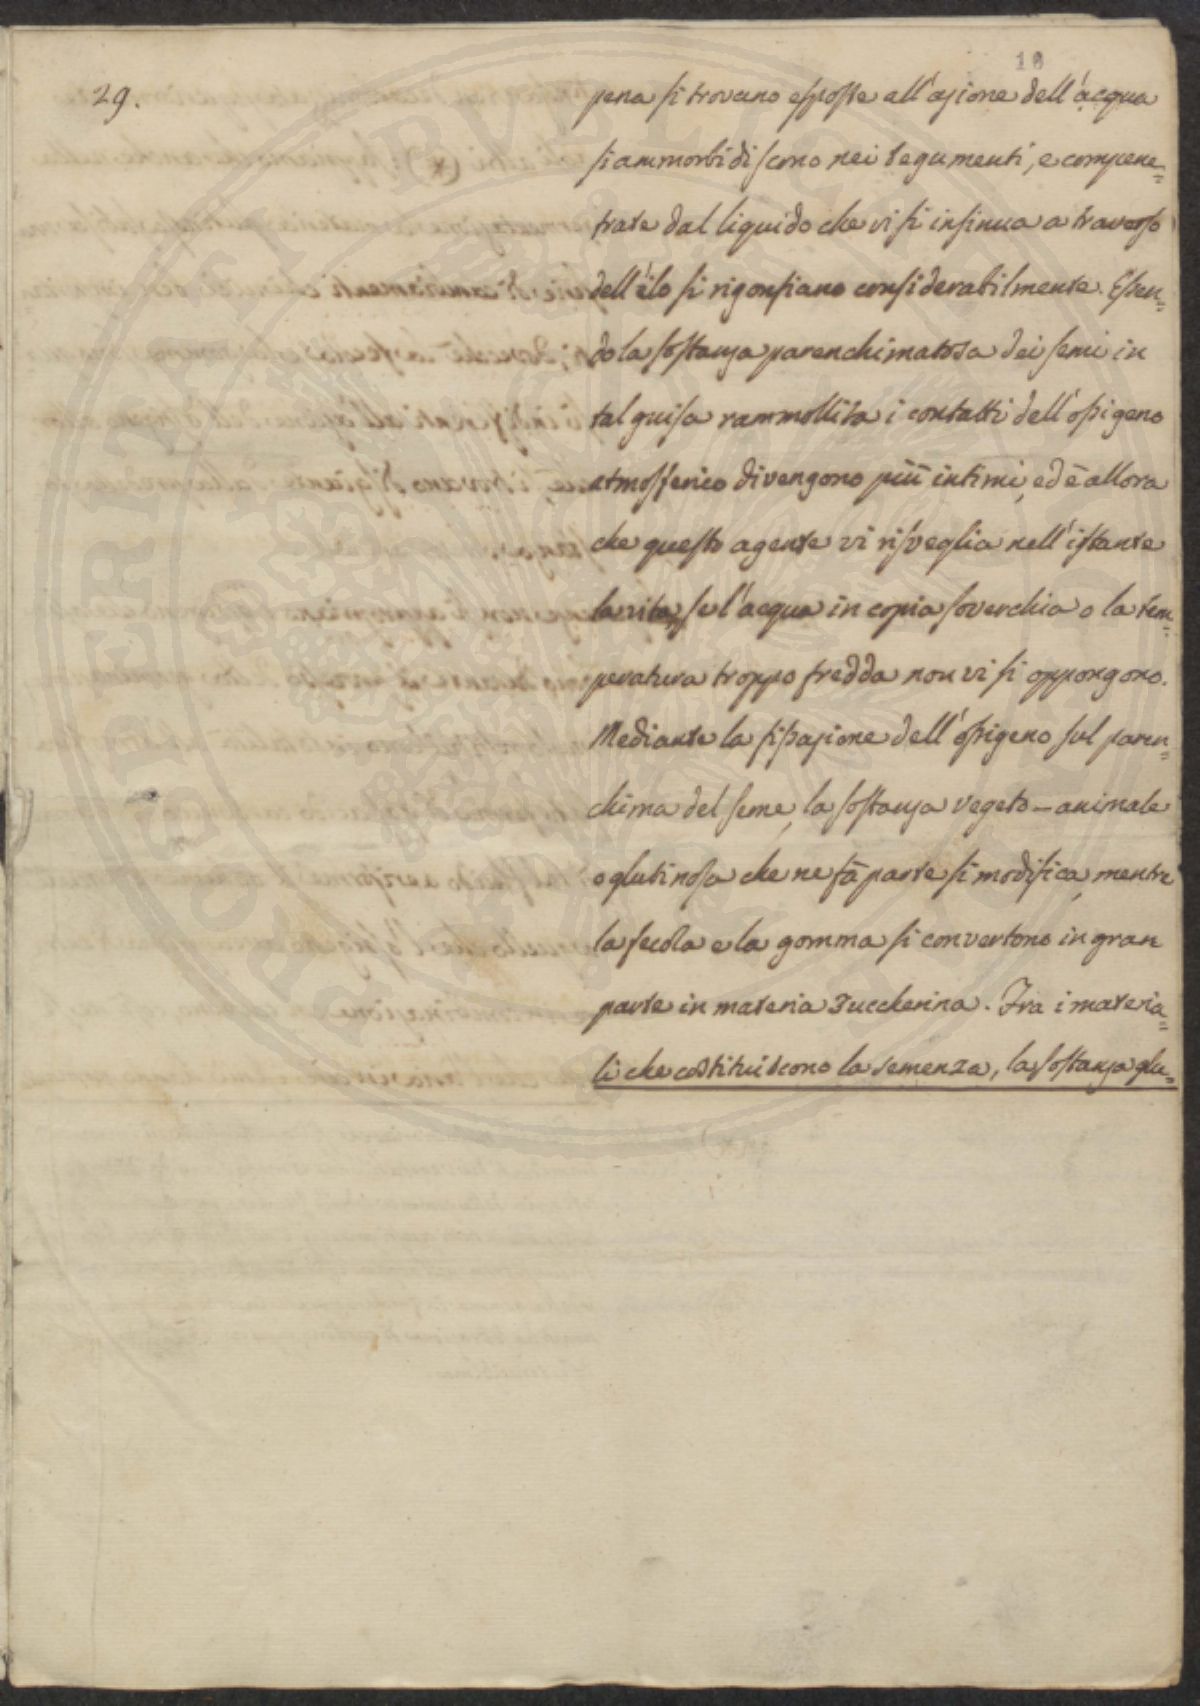 10
29.
pena si trovano esposte all'azione dell'acqua
si ammorbidiscono nei tegumenti, e compene=
trate dal liquido che vi si insinua a traverso
dell'ilo si rigonfiano considerabilmente. Essen=
do la sostanza parenchimatosa dei semi in
tal guisa rammollita i contatti dell'ossigeno
atmosferico divengono più intimi, ed è allora
che questo agente vi risveglia nell'istante
la vita, se l'acqua in copia soverchia o la tem=
peratura troppo fredda non vi si oppongono.
Mediante la fissazione dell'ossigeno sul paren=
chima del seme, la sostanza vegeto-animale
o glutinosa che ne fà parte si modifica, mentre
la fecola e la gomma si convertono in gran
parte in materia zuccherina. Fra i materia=
li che costituiscono la semenza, la sostanza glu=